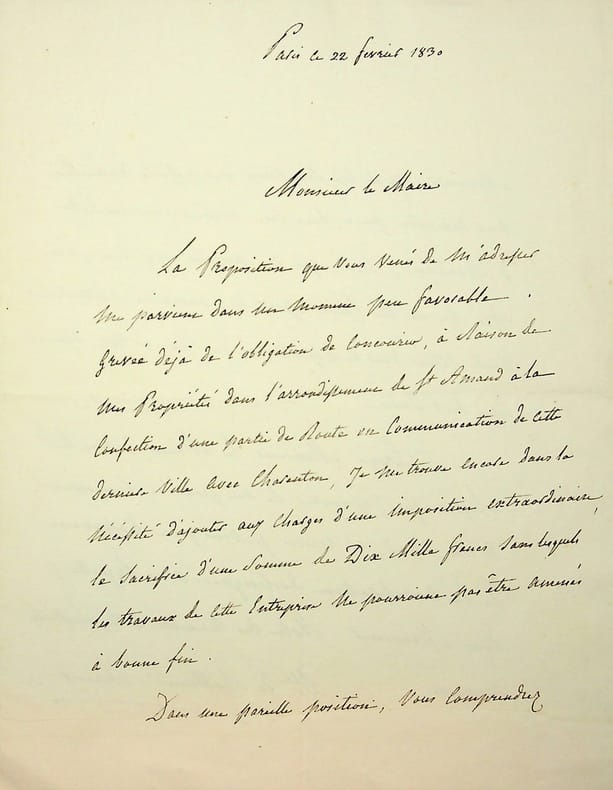 Paris ce 22 fevrier 1830
Monsieur le Maire
La Proposition que vous venés de m'adresser
me parvient dans un moment peu favorable.
Grevée déjà de l'obligation de Concourir, à Raison de
mes Propriétés dans l'arrondissement de St Amand à la
Confection d'une partie de Route en Communication de cette
derniere Ville avec Charenton, Je me trouve encore dans la
Nécéssité d'ajouter aux Charges d'une imposition extraordinaire,
le Sacrifice d'une Somme de Dix Mille francs sans lesquels
les travaux de cette Entreprise ne pourroient pas être amenés
à bonne fin.
Dans une pareille position, vous Comprendrez